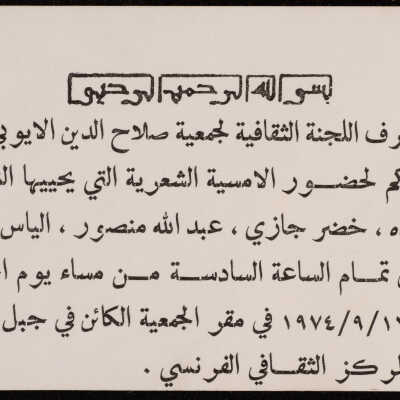 بسم الله الرحمن الرحيم
اللجنة الثقافية لجمعية صلاح الدين الايوبي
لحضـــور الامسية الشعرية التي يحييها
، خضر جازي ، عبد الله منصور ، الياس
تمــام الساعة السادســة مــن مساء يوم
١٩٧٤/٩/ في مقر الجمعية الكائن في جبل
الثقــافي الفرنسي .